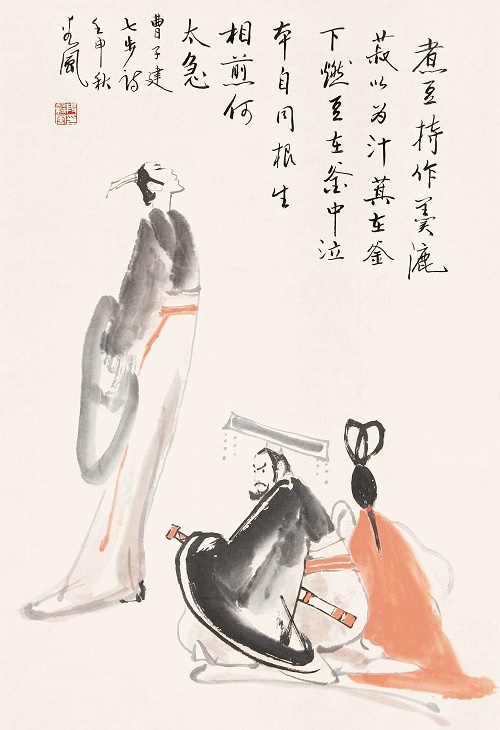 煮豆持作羹漉
菽以为汁萁在釜
下燃豆在釜中泣
本自同根生
相煎何
太急
曹子建
七步诗
壬申秋
風